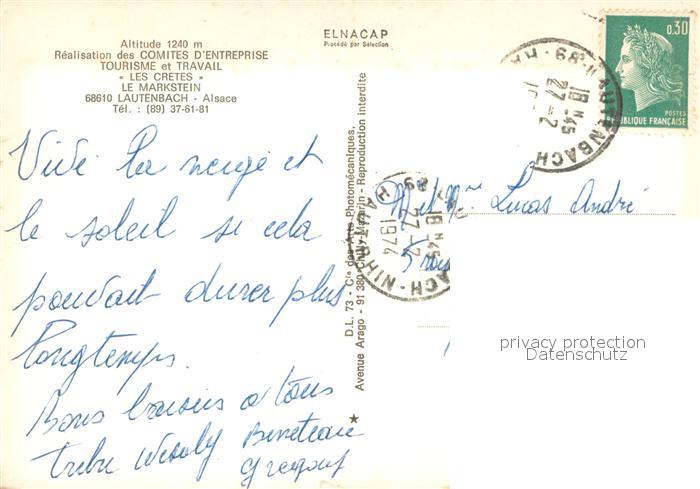 ELNACAP
Procédé par Sélection
Altitude 1240 m
Réalisation des COMITES D'ENTREPRISE
TOURISME et TRAVAIL
« LES CRETES »
LE MARKSTEIN
68610 LAUTENBACH - Alsace
Tél. : (89) 37-61-81
0,30
POSTES
REPUBLIQUE FRANÇAISE
18 H 45
27-2
LAUTENBACH
18 H 45
27-2
1974
D.L. 73 - Cie des Arts Photomécaniques,
Avenue Arago - 91 380 Chilly-Mazarin - Reproduction interdite
Vive la neige et
le soleil si cela
pouvait durer plus
longtemps.
Bons baisers à tous
Tribu Wesoly Beneteau
Lucas André
privacy protection
Datenschutz